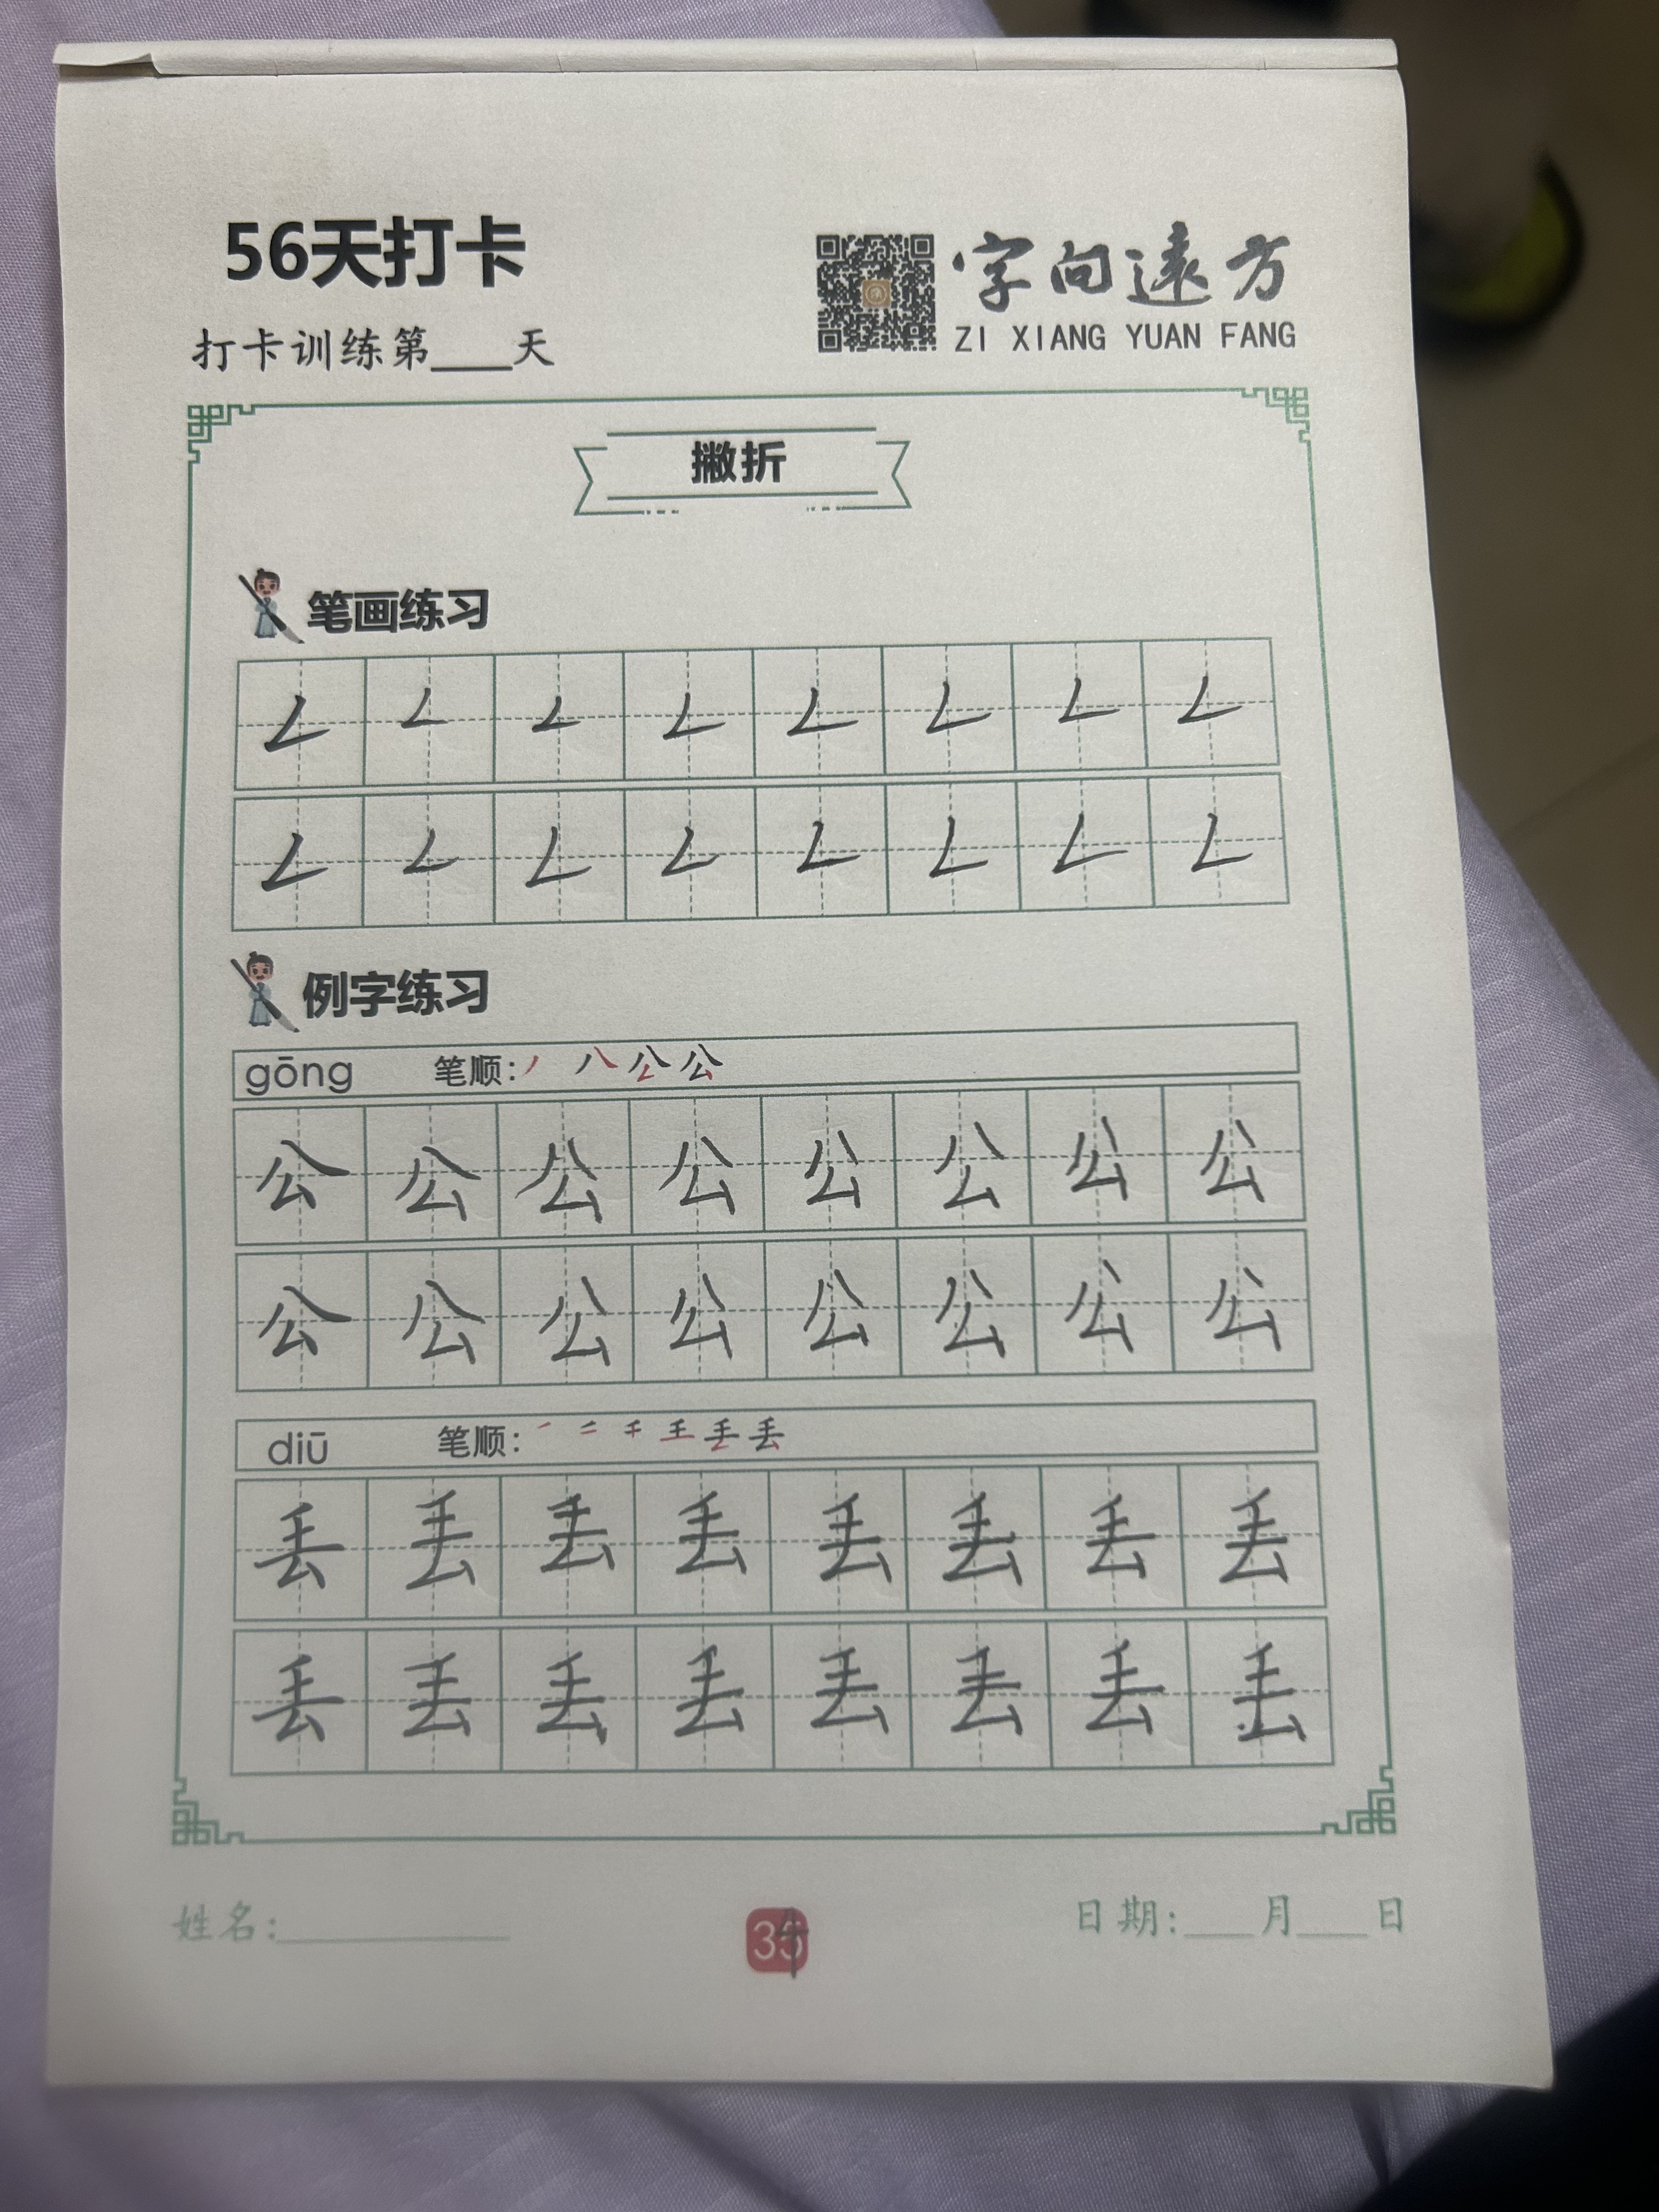 56天打卡
字向遠方
打卡训练第____天
ZI XIANG YUAN FANG
撇折
笔画练习
𠃋 𠃋 𠃋 𠃋 𠃋 𠃋 𠃋 𠃋
𠃋 𠃋 𠃋 𠃋 𠃋 𠃋 𠃋 𠃋
例字练习
gōng 笔顺:丿 八 公 公
公 公 公 公 公 公 公 公
公 公 公 公 公 公 公 公
diū 笔顺:
丢 丢 丢 丢 丢 丢 丢 丢
丢 丢 丢 丢 丢 丢 丢 丢
姓名:__________ 35 日期:____月____日